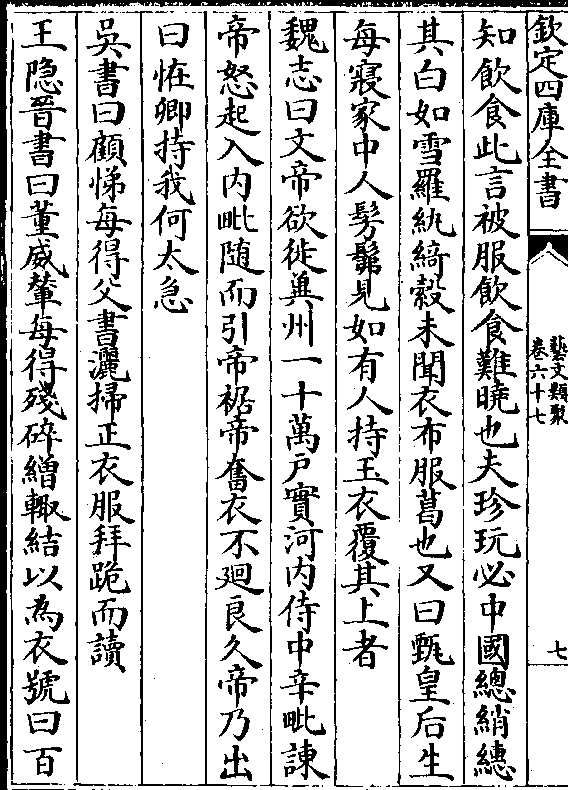 欽定四庫全書
藝文類聚
卷六十七
七
知飲食此言被服飲食難曉也夫珍玩必中國總綃繐
其白如雪羅紈綺縠未聞衣布服葛也又曰甄皇后生
每寢家中人髣髴見如有人持玉衣覆其上者
魏志曰文帝欲徙兾州一十萬戶實河内侍中辛毗諫
帝怒起入内毗随而引帝裾帝奮衣不廻良久帝乃出
曰恠卿持我何太急
吳書曰顧悌每得父書灑掃正衣服拜跪而讀
王隐晉書曰董威輦每得殘碎繒輙結以為衣號曰百